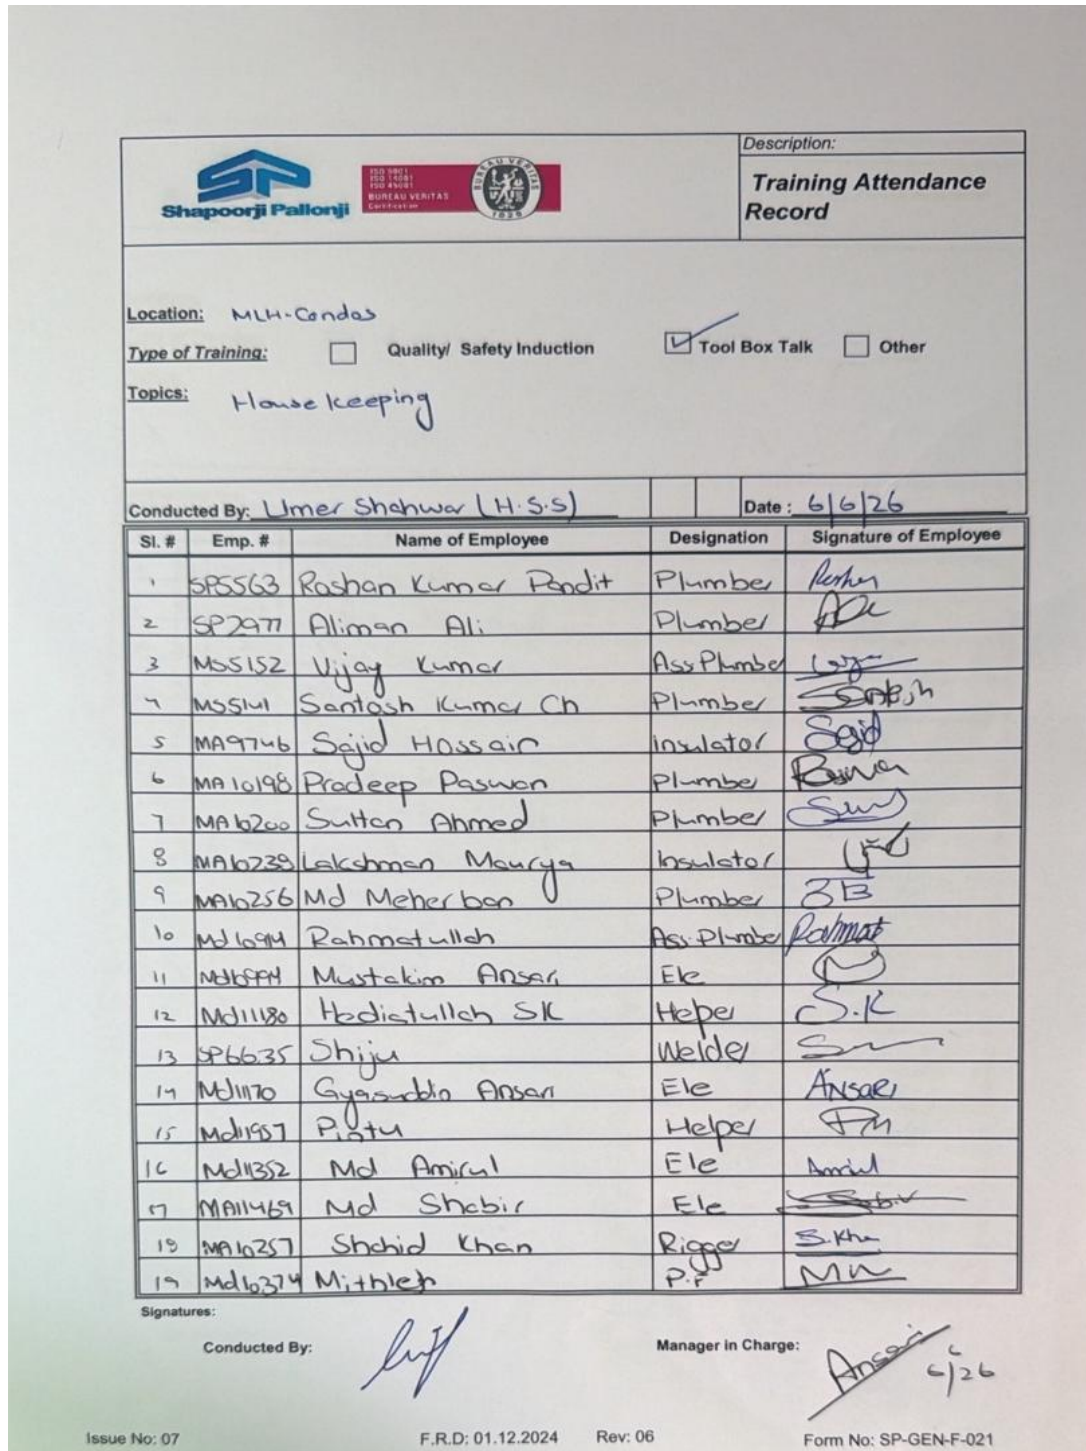 Description:
SP
Shapoorji Pallonji
ISO 9001
ISO 14001
ISO 45001
BUREAU VERITAS
Certification
BUREAU VERITAS
1828
Training Attendance
Record
Location: MLH-Condos
Type of Training: Quality/ Safety Induction Tool Box Talk Other
Topics: House keeping
Conducted By: Umer Shahwar (H.S.S) Date : 6/6/26
Sl. # Emp. # Name of Employee Designation Signature of Employee
1 SP5563 Roshan Kumar Pandit Plumber
2 SP2977 Aliman Ali Plumber
3 MS5152 Vijay Kumar Ass Plumber
4 MS5141 Santosh Kumar Ch Plumber Santosh
5 MA9746 Sajid Hossain Insulator Sajid
6 MA10198 Pradeep Paswan Plumber
7 MA10200 Sultan Ahmed Plumber
8 MA10239 Lakshman Maurya Insulator
9 MA10256 Md Meherban Plumber
10 Rahmatullah Ass. Plumber Rahmat
11 Mustakim Ansari Ele
12 Md11180 Hediatullah SK Heper S.K
13 SP6635 Shiju Welder
14 Md11170 Gyasuddin Ansari Ele ANSARI
15 Md11957 Pintu Helper
16 Md11352 Md Amirul Ele Amirul
17 MA11469 Md Shabir Ele
18 MA10257 Shahid Khan Rigger S.Kha
19 Md10374 Mithlesh P.F
Signatures:
Conducted By: Manager in Charge: Ansari
6/6/26
Issue No: 07 F.R.D: 01.12.2024 Rev: 06 Form No: SP-GEN-F-021